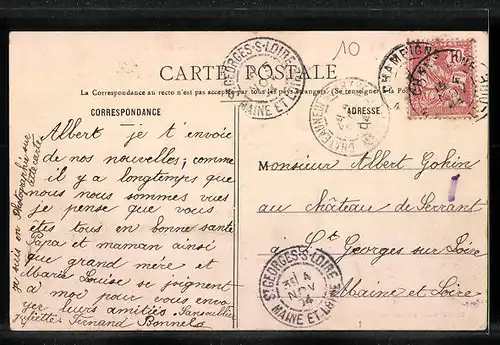 10
CARTE POSTALE
La Correspondance au recto n'est pas acceptée par tous les pays étrangers. (Se renseigner à la Poste)
CORRESPONDANCE
ADRESSE
Albert je t'envoie
de nos nouvelles; comme
il y a longtemps que
nous nous sommes vues
je pense que vous
êtes tous en bonne santé
Papa et maman ainsi
que grand mère et
Marie Louise se joignent
à moi pour vous envo
yer leurs amitiés. Sans oublier
Juliette Fernand Bonnels
je suis en photographie sur
cette carte
Monsieur Albert Gokin
au château de Serrant
à St Georges sur Loire
Maine et Loire
ST GEORGES-S-LOIRE
MAINE ET LOIRE
ST GEORGES-S-LOIRE
4
NOV
04
MAINE ET LOIRE
CHAMPIGNÉ
10